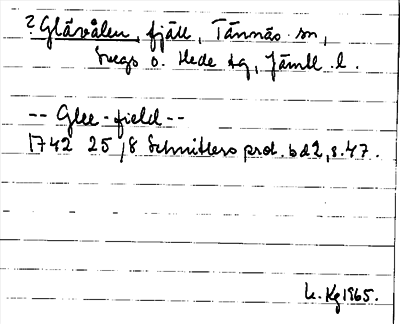 ? Glåvålen, fjäll, Tännäs sn,
Svegs o. Hede tg, Jämtl. l.
-- Glee-field --
1742 25/8 Schnitlers prot. bd 2, s. 47.
L. Kg 1965.